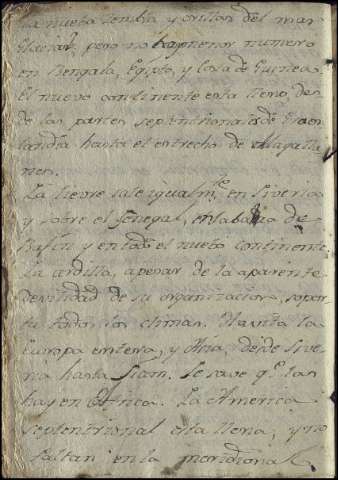 la nueva Zembla y orillas del mar
Glacial, pero no hay menor numero
en Bengala, Egipto, y Costa de Guinea.
El nuevo continente esta lleno, des
de las partes septentrionales de Groen
landia hasta el estrecho de Magalla
nes.
La liebre sale igualmte. en Siveria
y sobre el Senegal, en la bahia de
Bafin y en todo el nuevo continente.
La ardilla, apesar de la aparente
de su organizacion, sopor
ta todos los climas. Havita la
Europa entera, y Asia, desde Sive
ria hasta Siam. Se save qe. las
hay en Africa. La America
septentrional esta llena, y no
faltan en la meridional